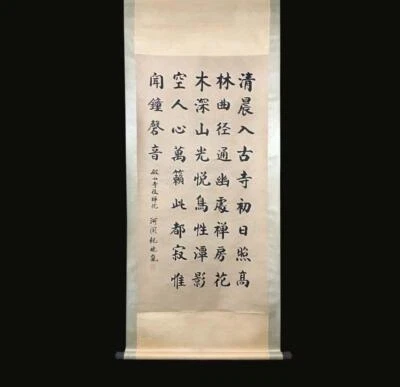 清晨入古寺初日照高
林曲径通幽處禅房花
木深山光悦鳥性潭影
空人心萬籟此都寂惟
聞鐘磬音 破山寺後禅院 河间紀曉嵐